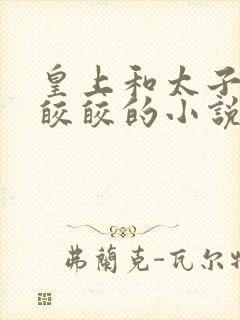 皇上和太子
皎皎的小說
弗蘭克-瓦尔特